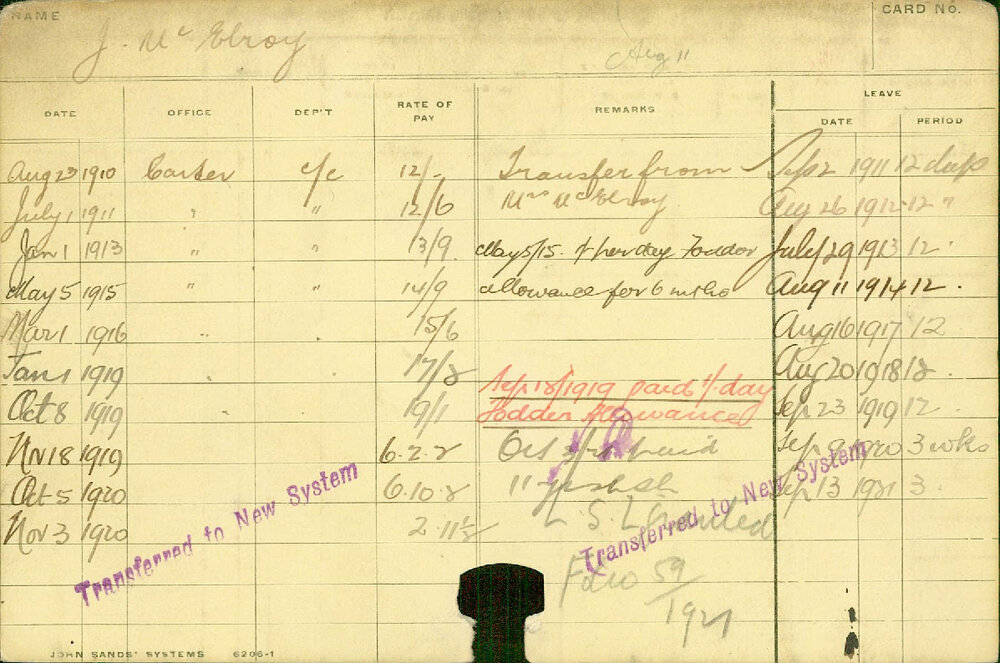 NAME
CARD NO.
J. McElroy
Aug 11
LEAVE
DATE OFFICE DEP'T RATE OF PAY REMARKS DATE PERIOD
Aug 23 1910 Carter c/c 12/- Transfer from Sep 2 1911 12 days
July 1 1911 " " 12/6 Mrs McElroy Aug 26 1912 12 "
Jan 1 1913 " " 13/9 May 5/15. 1/ per day Fodder July 29 1913 12 "
May 5 1915 " " 14/9 allowance for 6 mths Aug 11 1914 12 "
Mar 1 1916 " 15/6 Aug 16 1917 12
Jan 1 1919 " 17/8 Aug 20 1918 18
Sep 18/1919 paid 1/- day
Oct 8 1919 19/1 Fodder Allowance Sep 23 1919 12 "
Nov 18 1919 6.2.2 Oct paid Sep 1920 3 wks
Oct 5 1920 6.10.8 11 Sep 13 1921 3 "
Nov 3 1920 2.11½ L S L Granted
Transferred to New System
Transferred to New System
Folio 59/1921
JOHN SANDS' SYSTEMS 6206-1